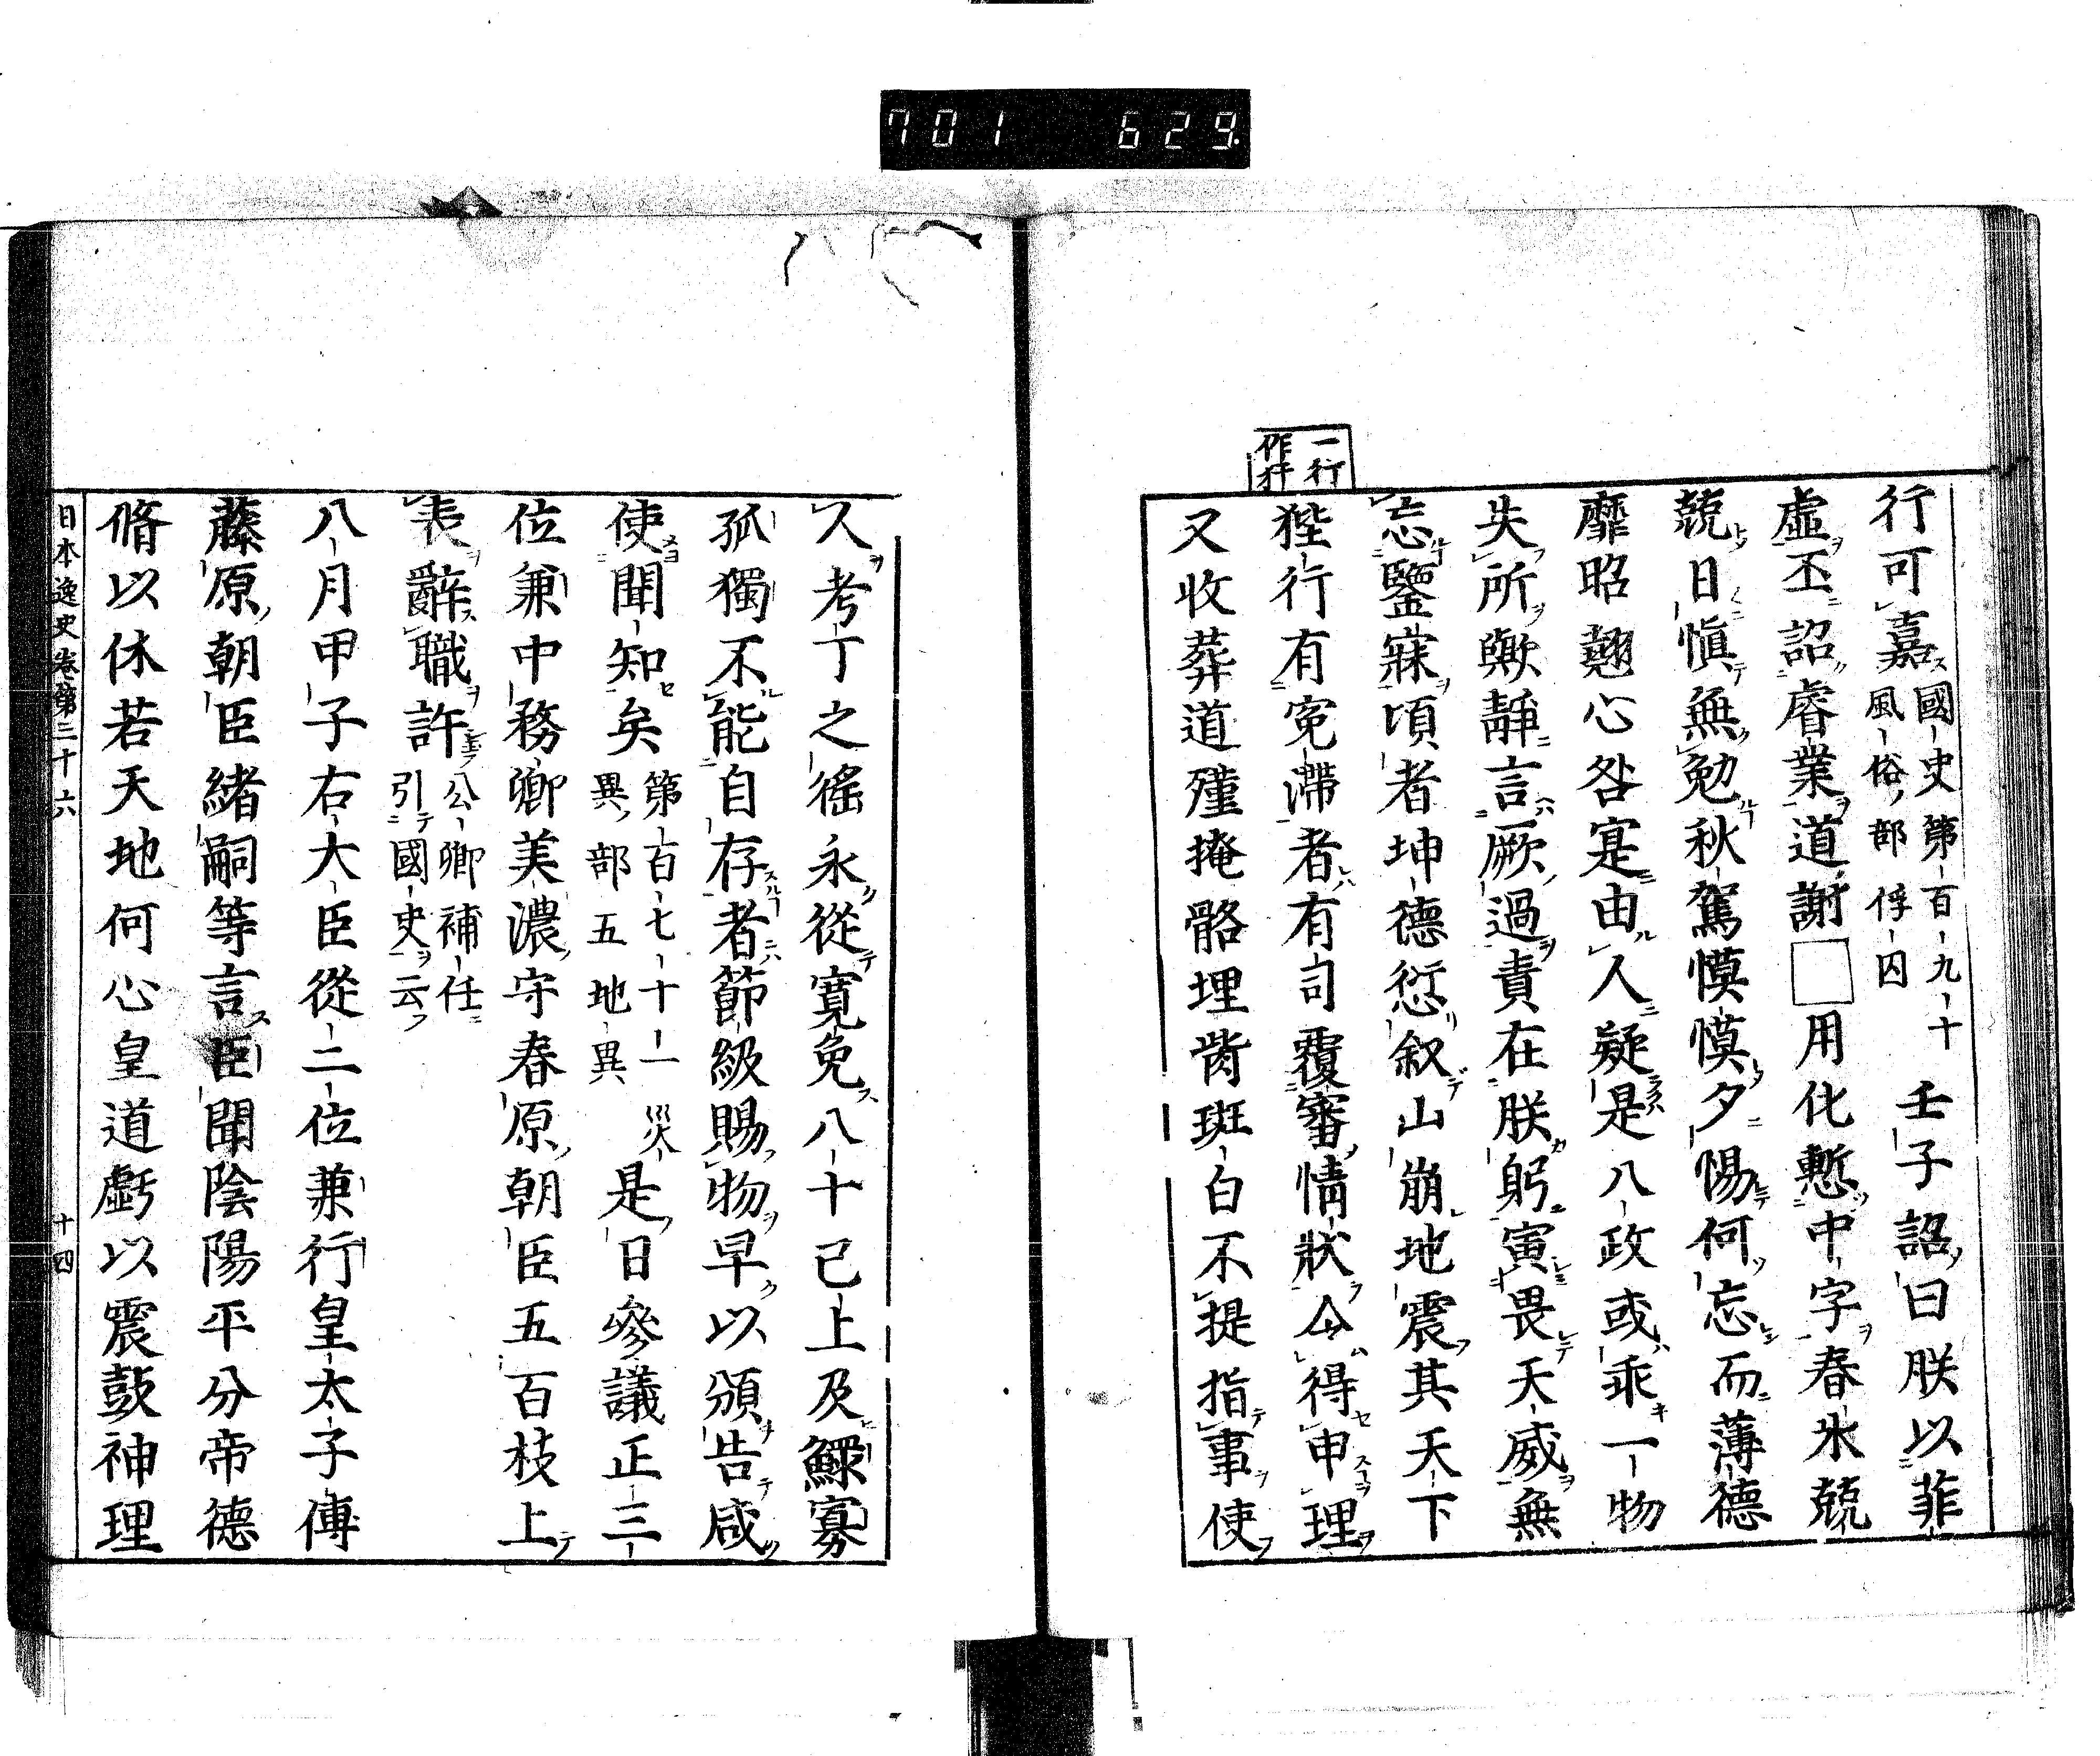 701 629
一行
作犴
行可嘉國史第百九十
風俗部俘囚壬子詔曰朕以菲
虛丕詔睿業道謝□用化慙中字春氷兢
兢日愼無勉秋駕慔慔夕惕何忘而薄德
靡昭翹心咎寔由人疑是八政或乖一物
失所歟静言厥過責在朕躬寅畏天威無
忘鑒寐頃者坤德愆叙山崩地震其天下
狴行有寃滯者有司覆審情狀令得申理
又收葬道殣掩骼埋胔斑白不提指事使
人考丁之徭永從寬免八十已上及鰥寡
孤獨不能自存者節級賜物早以頒告咸
使聞知矣第百七十一災
異部五地異是日參議正三
位兼中務卿美濃守春原朝臣五百枝上
表辭職許公卿補任
引國史云
八月甲子右大臣從二位兼行皇太子傅
藤原朝臣緒嗣等言臣聞陰陽平分帝德
脩以休若天地何心皇道虧以震鼓神理
日本逸史卷第三十六 十四